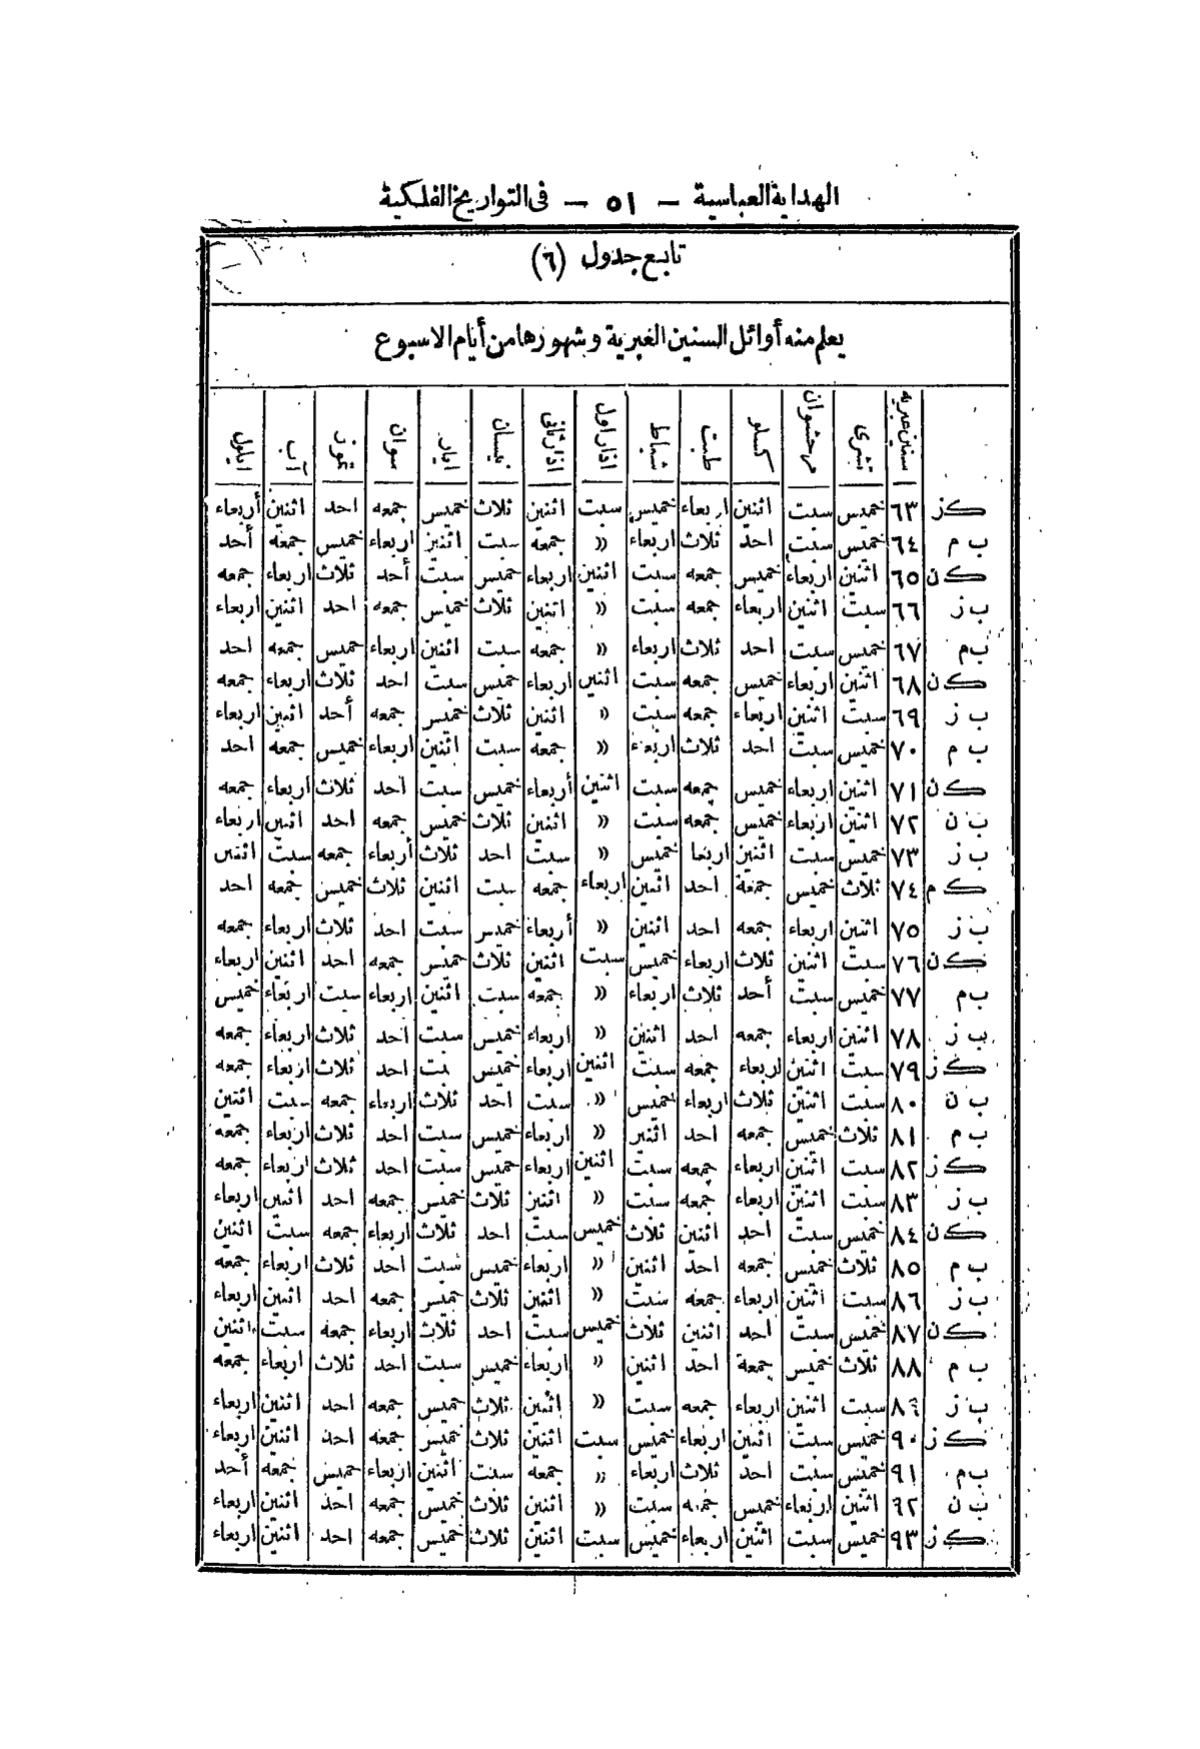 الهداية العباسية — ٥١ — فى التواريخ الفلكية
تابع جدول (٦)
يعلم منه أوائل السنين العبرية وشهورها من أيام الاسبوع
سنين عبريه تشرى مرحشوان كسلو طبت شباط اذار اول اذار ثانى نيسان ايار سوان تموز آب ايلول
ك ز ٦٣ خميس سبت اثنين اربعاء خميس سبت اثنين ثلاث خميس جمعه احد اثنين أربعاء
ب م ٦٤ خميس سبت احد ثلاث اربعاء » جمعه سبت اثنين اربعاء خميس جمعه أحد
ك ن ٦٥ اثنين اربعاء خميس جمعه سبت اثنين اربعاء خميس سبت أحد ثلاث اربعاء جمعه
ب ز ٦٦ سبت اثنين اربعاء جمعه سبت » اثنين ثلاث خميس جمعه احد اثنين اربعاء
ب م ٦٧ خميس سبت احد ثلاث اربعاء » جمعه سبت اثنين اربعاء خميس جمعه احد
ك ن ٦٨ اثنين اربعاء خميس جمعه سبت اثنين اربعاء خميس سبت احد ثلاث اربعاء جمعه
ب ز ٦٩ سبت اثنين اربعاء جمعه سبت » اثنين ثلاث خميس جمعه أحد اثنين اربعاء
ب م ٧٠ خميس سبت احد ثلاث اربعاء » جمعه سبت اثنين اربعاء خميس جمعه احد
ك ن ٧١ اثنين اربعاء خميس جمعه سبت اثنين أربعاء خميس سبت احد ثلاث اربعاء جمعه
ب ن ٧٢ اثنين اربعاء خميس جمعه سبت » اثنين ثلاث خميس جمعه احد اثنين اربعاء
ب ز ٧٣ خميس سبت اثنين اربعا خميس » سبت احد ثلاث أربعاء جمعه سبت اثنين
ك م ٧٤ ثلاث خميس جمعة احد اثنين اربعاء جمعه سبت اثنين ثلاث خميس جمعه احد
ب ز ٧٥ اثنين اربعاء جمعه احد اثنين » أربعاء خميس سبت احد ثلاث اربعاء جمعه
ك ن ٧٦ سبت اثنين ثلاث اربعاء خميس سبت اثنين ثلاث خميس جمعه احد اثنين اربعاء
ب م ٧٧ خميس سبت أحد ثلاث اربعاء » جمعه سبت اثنين اربعاء سبت اربعاء خميس
ب ز ٧٨ اثنين اربعاء جمعه احد اثنين » اربعاء خميس سبت احد ثلاث اربعاء جمعه
ك ز ٧٩ سبت اثنين اربعاء جمعه سبت اثنين اربعاء خميس سبت احد ثلاث اربعاء جمعه
ب ن ٨٠ سبت اثنين ثلاث اربعاء خميس » سبت احد ثلاث اربعاء جمعه سبت اثنين
ب م ٨١ ثلاث خميس جمعه احد اثنين » اربعاء خميس سبت احد ثلاث اربعاء جمعه
ك ز ٨٢ سبت اثنين اربعاء جمعه سبت اثنين اربعاء خميس سبت احد ثلاث اربعاء جمعه
ب ز ٨٣ سبت اثنين اربعاء جمعه سبت » اثنين ثلاث خميس جمعه احد اثنين اربعاء
ك ن ٨٤ خميس سبت احد اثنين ثلاث خميس سبت احد ثلاث اربعاء جمعه سبت اثنين
ب م ٨٥ ثلاث خميس جمعه احد اثنين » اربعاء خميس سبت احد ثلاث اربعاء جمعه
ب ز ٨٦ سبت اثنين اربعاء جمعه سبت » اثنين ثلاث خميس جمعه احد اثنين اربعاء
ك ن ٨٧ خميس سبت احد اثنين ثلاث خميس سبت احد ثلاث اربعاء جمعه سبت اثنين
ب م ٨٨ ثلاث خميس جمعة احد اثنين » اربعاء خميس سبت احد ثلاث اربعاء جمعه
ب ز ٨٩ سبت اثنين اربعاء جمعه سبت » اثنين ثلاث خميس جمعه احد اثنين اربعاء
ك ز ٩٠ خميس سبت اثنين اربعاء خميس سبت اثنين ثلاث خميس جمعه احد اثنين اربعاء
ب م ٩١ خميس سبت احد ثلاث اربعاء » جمعه سبت اثنين اربعاء خميس جمعه أحد
ب ن ٩٢ اثنين اربعاء خميس جمعه سبت » اثنين ثلاث خميس جمعه احد اثنين اربعاء
ك ز ٩٣ خميس سبت اثنين اربعاء خميس سبت اثنين ثلاث خميس جمعه احد اثنين اربعاء